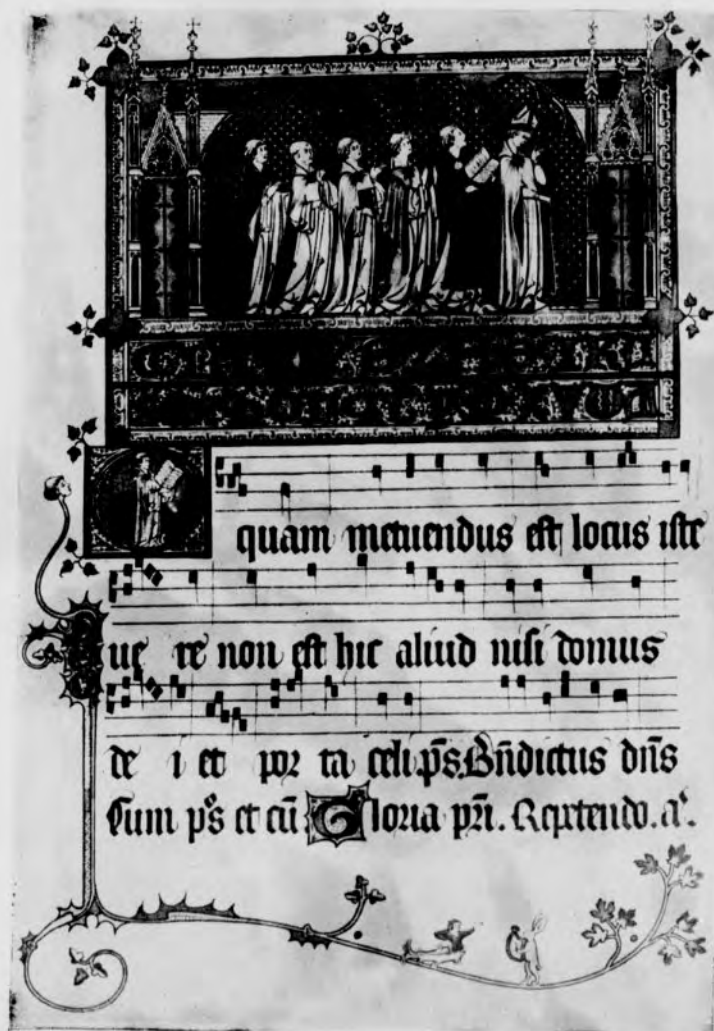 quam metuendus est locus iste
ue re non est hic aliud nisi domus
de i et por ta celi. ps. Bñdictus dñs
Cum pͦs et cū Gloria pr̄i. Repetendo. aͣ.